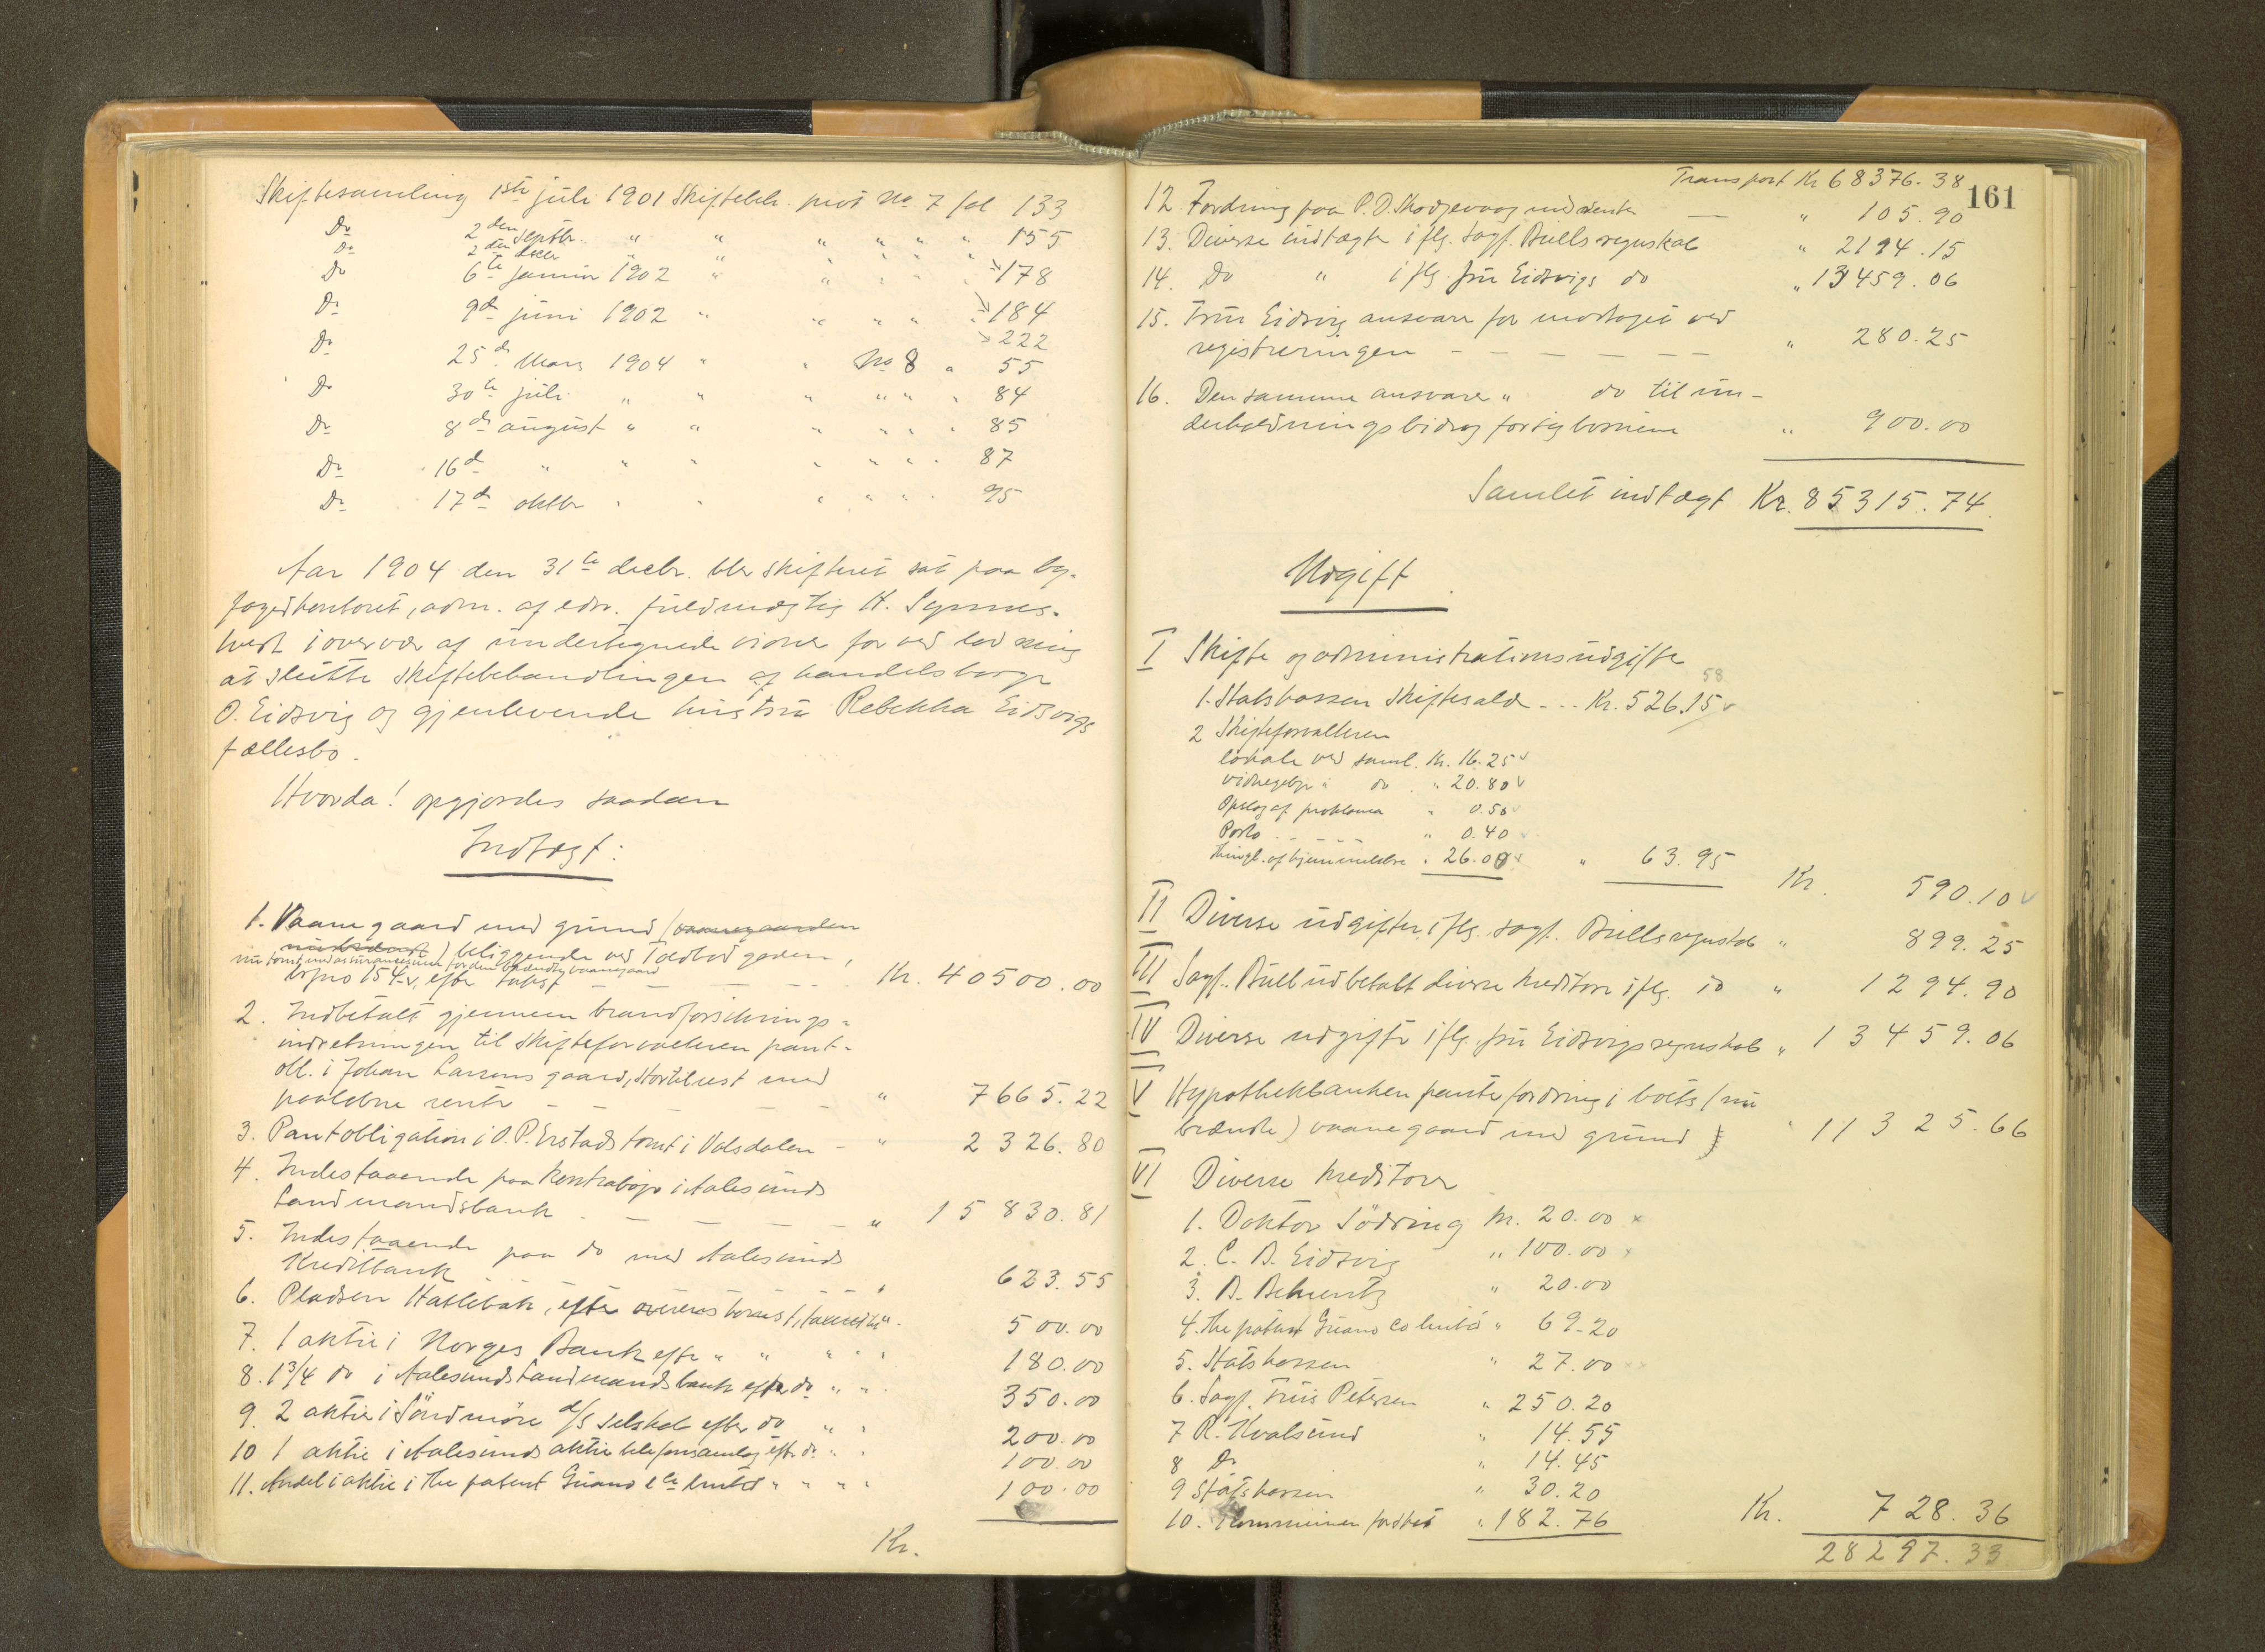 Skiftesamling 1ste juli 1901 Skiftebeh. prot No. 7 fol 133
Do 2den septbr. " " " " " " 155
Do 2den decbr " " " " " " "178
Do 6te januar 1902 " " " " "184
Do 9de juni 1902 " " " " "222
Do 25de Mars 1904 " " No 8 " 55
Do 30te juli " " " " " " 84
Do 8de august " " " " " " 85
Do 16de " " " " " " " 87
Do 17de oktbr " " " " " " 95
Aar 1904 den 31te decbr. blev skifteret sat paa by-
fogedkontoret, adm. af edsv. fuldmægtig H. Synnes-
tvedt i overvær af undertegnede vidner for ved lodning
at slutte skiftebehandlingen af handelsborger
O. Eidsvig og gjenlevende hustru Rebekka Eidsvigs
fællesbo.
Hvorda! opgjordes saadan
Indtægt:
1. Vaanegaard med grund (vaanegaarden
nedbrændt) beliggende ved Toldbodgaden,
nu tomt med assurancesum for den brændte vaanegaard
bypno 154 v, efter takst — — — — Kr. 40500.00
2. Indbetalt gjennem brandforsikrings-
indretningen til skifteforvalteren pant-
obl. i Johan Larsens gaard, Stortilrest med
paaløbne renter — — — — " 7665.22
3. Pantobligation i O. P. Erstads tomt i Volsdalen — " 2326.80
4. Indestaaende paa kontrabog i Aalesunds
Landmandsbank — — — — " 15830.81
5. Indestaaende paa do med Aalesunds
Kreditbank — — " 623.55
6. Pladsen Hatlebak, efter overenskomst, taxeret til " 500.00
7. 1 aktie i Norges Bank efter " " " " " 180.00
8. 1 3/4 do i Aalesunds Landmandsbank efter do " " 350.00
9. 2 aktier i Söndmöre d/s selskab efter do " " 200.00
10 1 aktie i Aalesunds aktie telefonsamlag eft. do " " 100.00
11. Andel i aktie i The patent Guano Co limited " " " " 100.00
Kr.
161
Transport Kr 68376.38
12 Fordring paa P. O. Skodjevaag med renter — " 105.90
13. Diverse indtægter iflg. sagf. Bulls regnskab " 2194.15
14. Do " iflg. fru Eidsvigs do " 13459.06
15. Fru Eidsvig ansvarer for modtaget ved
registreringen — — — — — — " 280.25
16. Den samme ansvarer " do til un-
derholdningsbidrag for sig børnene " 900.00
Samlet indtægt Kr. 85315.74
Udgift
I Skifte og administrationsudgifter
58
1. Statskassen skiftesald - - - Kr. 526.15 v
2 Skifteforvalteren
lokale ved saml. Kr. 16.25 v
vidnegebyr i do " 20.80 v
Opslag af proklama " 0.50 v
Porto - - - - " 0.40 v
thingl. af hjemmelsbre " 26.00 v " 63.95
Kr. 590.10 v
II Diverse udgifter iflg. sagf. Bulls regnskab " 899.25
III Sagf. Bull udbetalt diverse kreditorer iflg. do " 1294.90
IV Diverse udgifter iflg. fru Eidsvigs regnskab " 13459.06
V Hypothekbanken pantefordring i boets (nu
brændte) vaanegaard med grund } " 11325.66
VI Diverse kreditorer
1. Doktor Södring Kr. 20.00 x
2. C. B. Eidsvig " 100.00 x
3. B. Behrentz " 20.00
4. The patent Guano Co limitd " 69.20
5. Statskassen " 27.00 x
6. Sagf. Friis Petersen " 250.20
7 R. Kvalsund " 14.55
8 Do " 14.45
9 Statskassen " 30.20
10. Kommunen forskud " 182.76 Kr. 728.36
28297.33